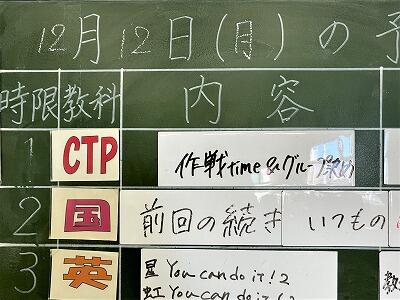 12月12日(月)の予
時限 教科 内容
1 CTP 作戦time&グループ決め
2 国 前回の続き いつもの
3 英 星 You can do it! 2
虹 You can do it!